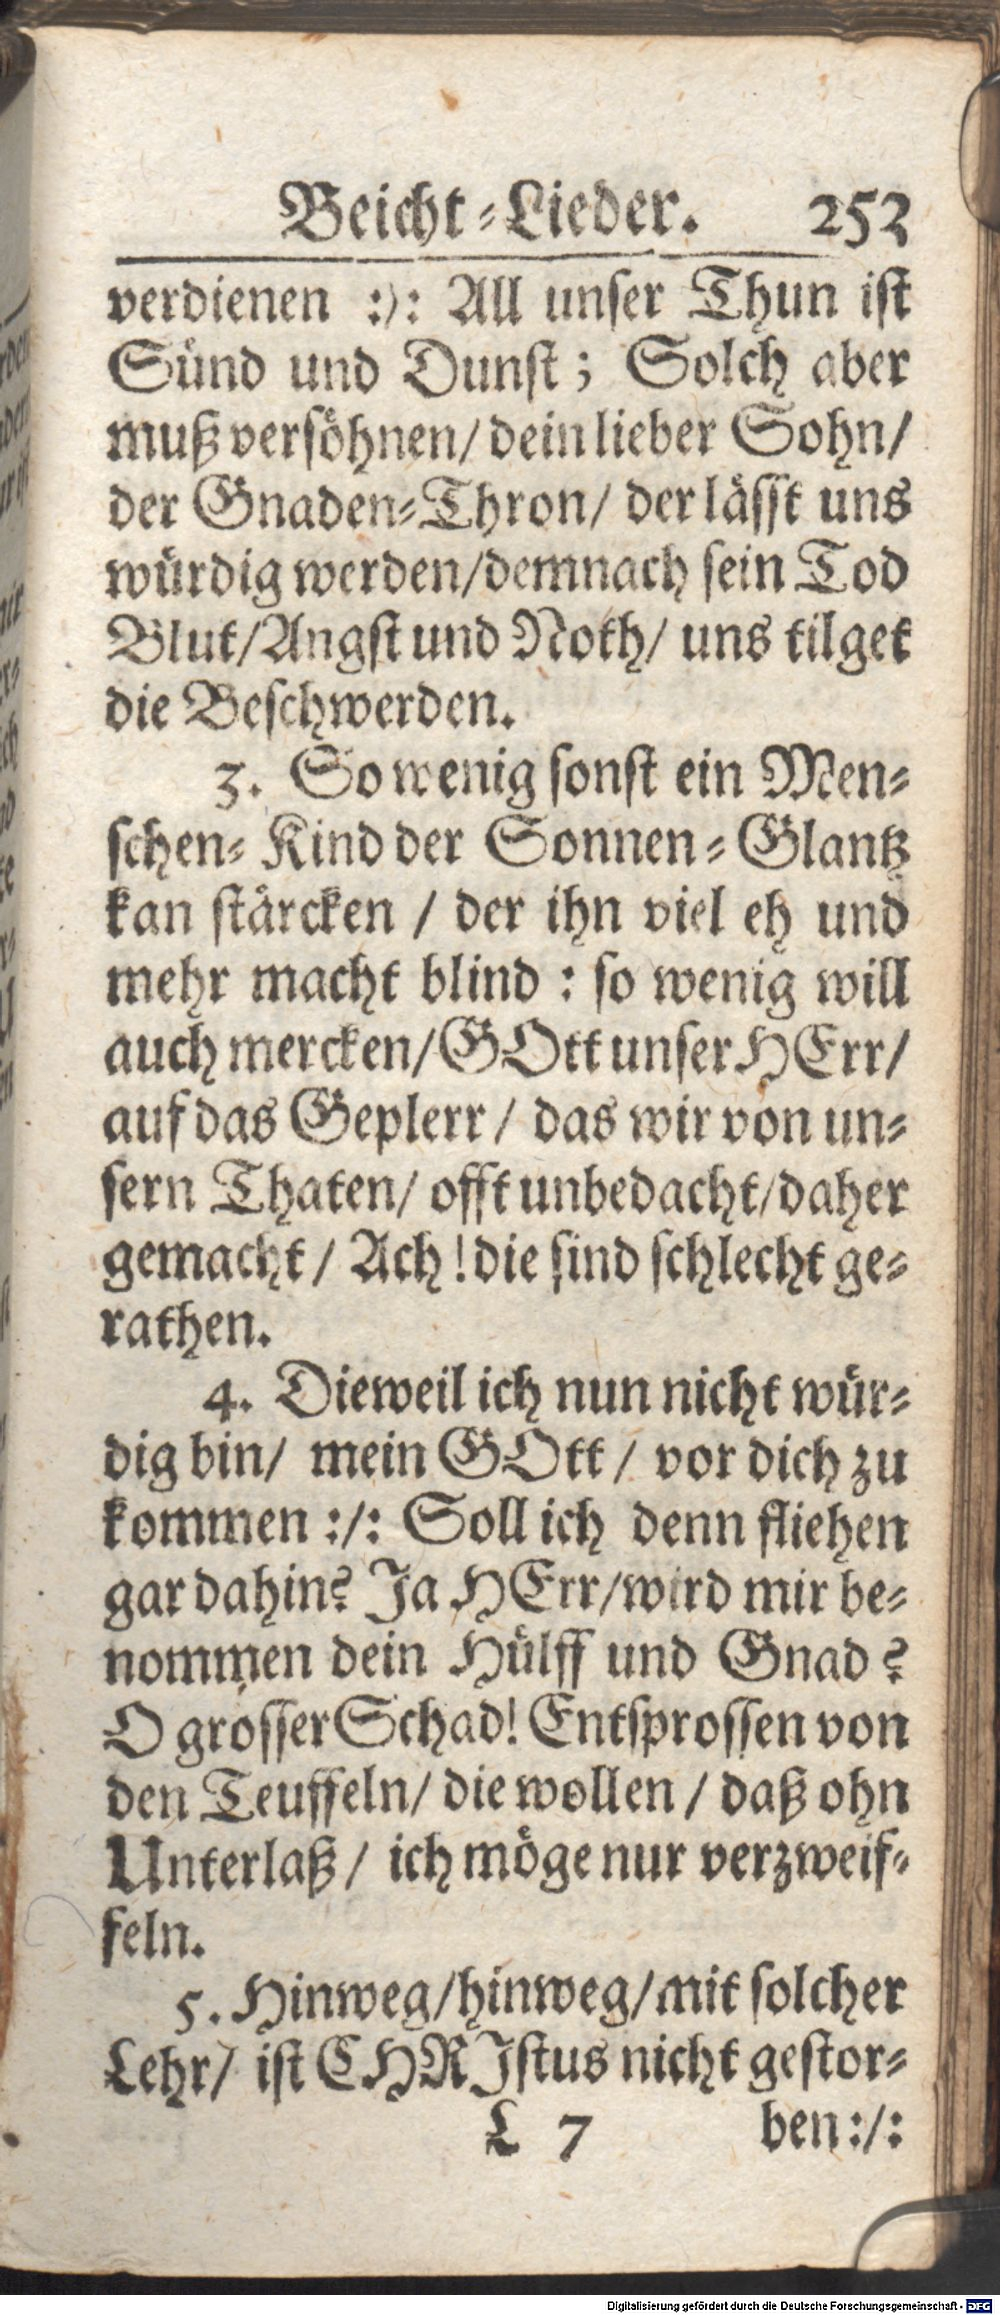 Beicht-Lieder. 253
verdienen :/: All unser Thun ist
Sünd und Dunst; Solch aber
muß versöhnen/ dein lieber Sohn/
der Gnaden-Thron/ der lässt uns
würdig werden/demnach sein Tod
Blut/Angst und Noth/ uns tilget
die Beschwerden.
3. So wenig sonst ein Men-
schen-Kind der Sonnen-Glantz
kan stärcken / der ihn viel eh und
mehr macht blind : so wenig will
auch mercken/GOtt unser HErr/
auf das Geplerr / das wir von un-
sern Thaten/ offt unbedacht/daher
gemacht / Ach! die sind schlecht ge-
rathen.
4. Dieweil ich nun nicht wür-
dig bin/ mein GOtt / vor dich zu
kommen :/: Soll ich denn fliehen
gar dahin? Ja HErr/wird mir be-
nommen dein Hülff und Gnad?
O grosser Schad! Entsprossen von
den Teuffeln/ die wollen / daß ohn
Unterlaß / ich möge nur verzweif-
feln.
5. Hinweg/hinweg/mit solcher
Lehr/ ist CHRJstus nicht gestor-
L 7 ben :/:
Digitalisierung gefördert durch die Deutsche Forschungsgemeinschaft - DFG